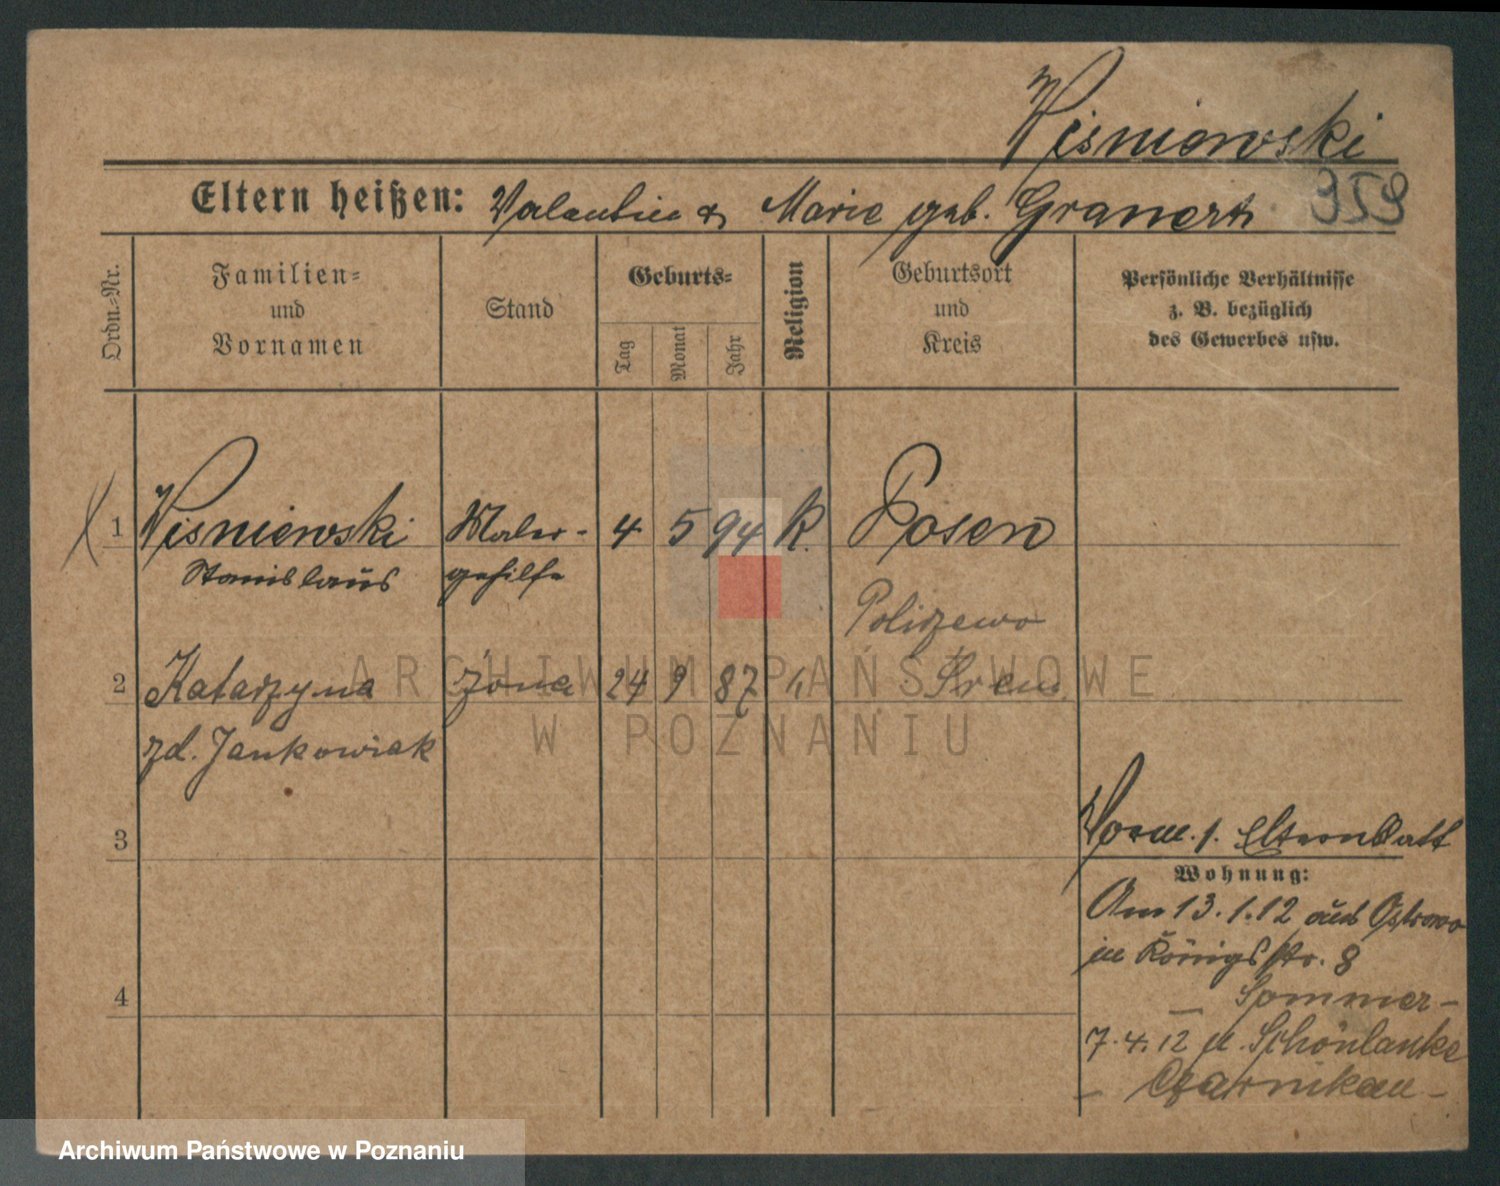 Wisniewski
Eltern heißen: Valentin & Marie geb. Granert
359
Ordn.-Nr.
Familien-
und
Vornamen
Stand
Geburts-
Tag
Monat
Jahr
Religion
Geburtsort
und
Kreis
Persönliche Verhältnisse
z. B. bezüglich
des Gewerbes usw.
1 Wisniewski Maler- 4 5 94 K. Posen
Stanislaus gehilfe
Poliszewo
2 Katarzyna żona 24 9 87 " Śrem
zd. Jankowiak
3
Vorm. s. Elternblatt
Wohnung:
Am 13.1.12 aus Ostrowo
in Königsstr. 8
4
– Sommer –
7.4.12 n. Schönlanke
– Czarnikau –
ARCHIWUM PAŃSTWOWE
W POZNANIU
Archiwum Państwowe w Poznaniu